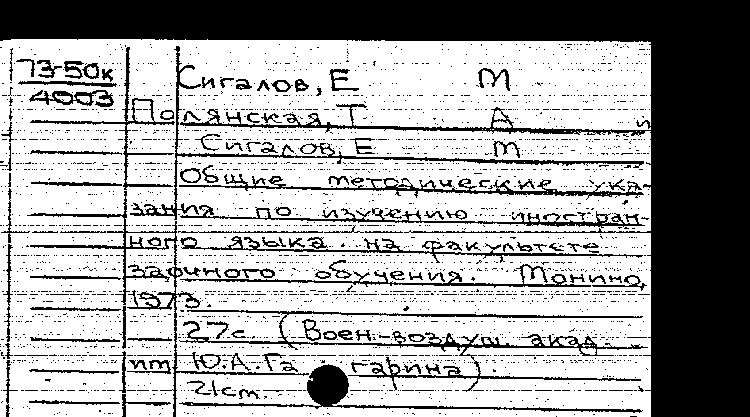 73-50к
4003
Сигалов, Е М
Полянская, Т А и
Сигалов, Е М
Общие методические ука-
зания по изучению иностран-
ного языка на факультете
заочного обучения. Монино,
1973.
27с. (Воен.-воздуш. акад.
им Ю.А.Гагарина).
21см.